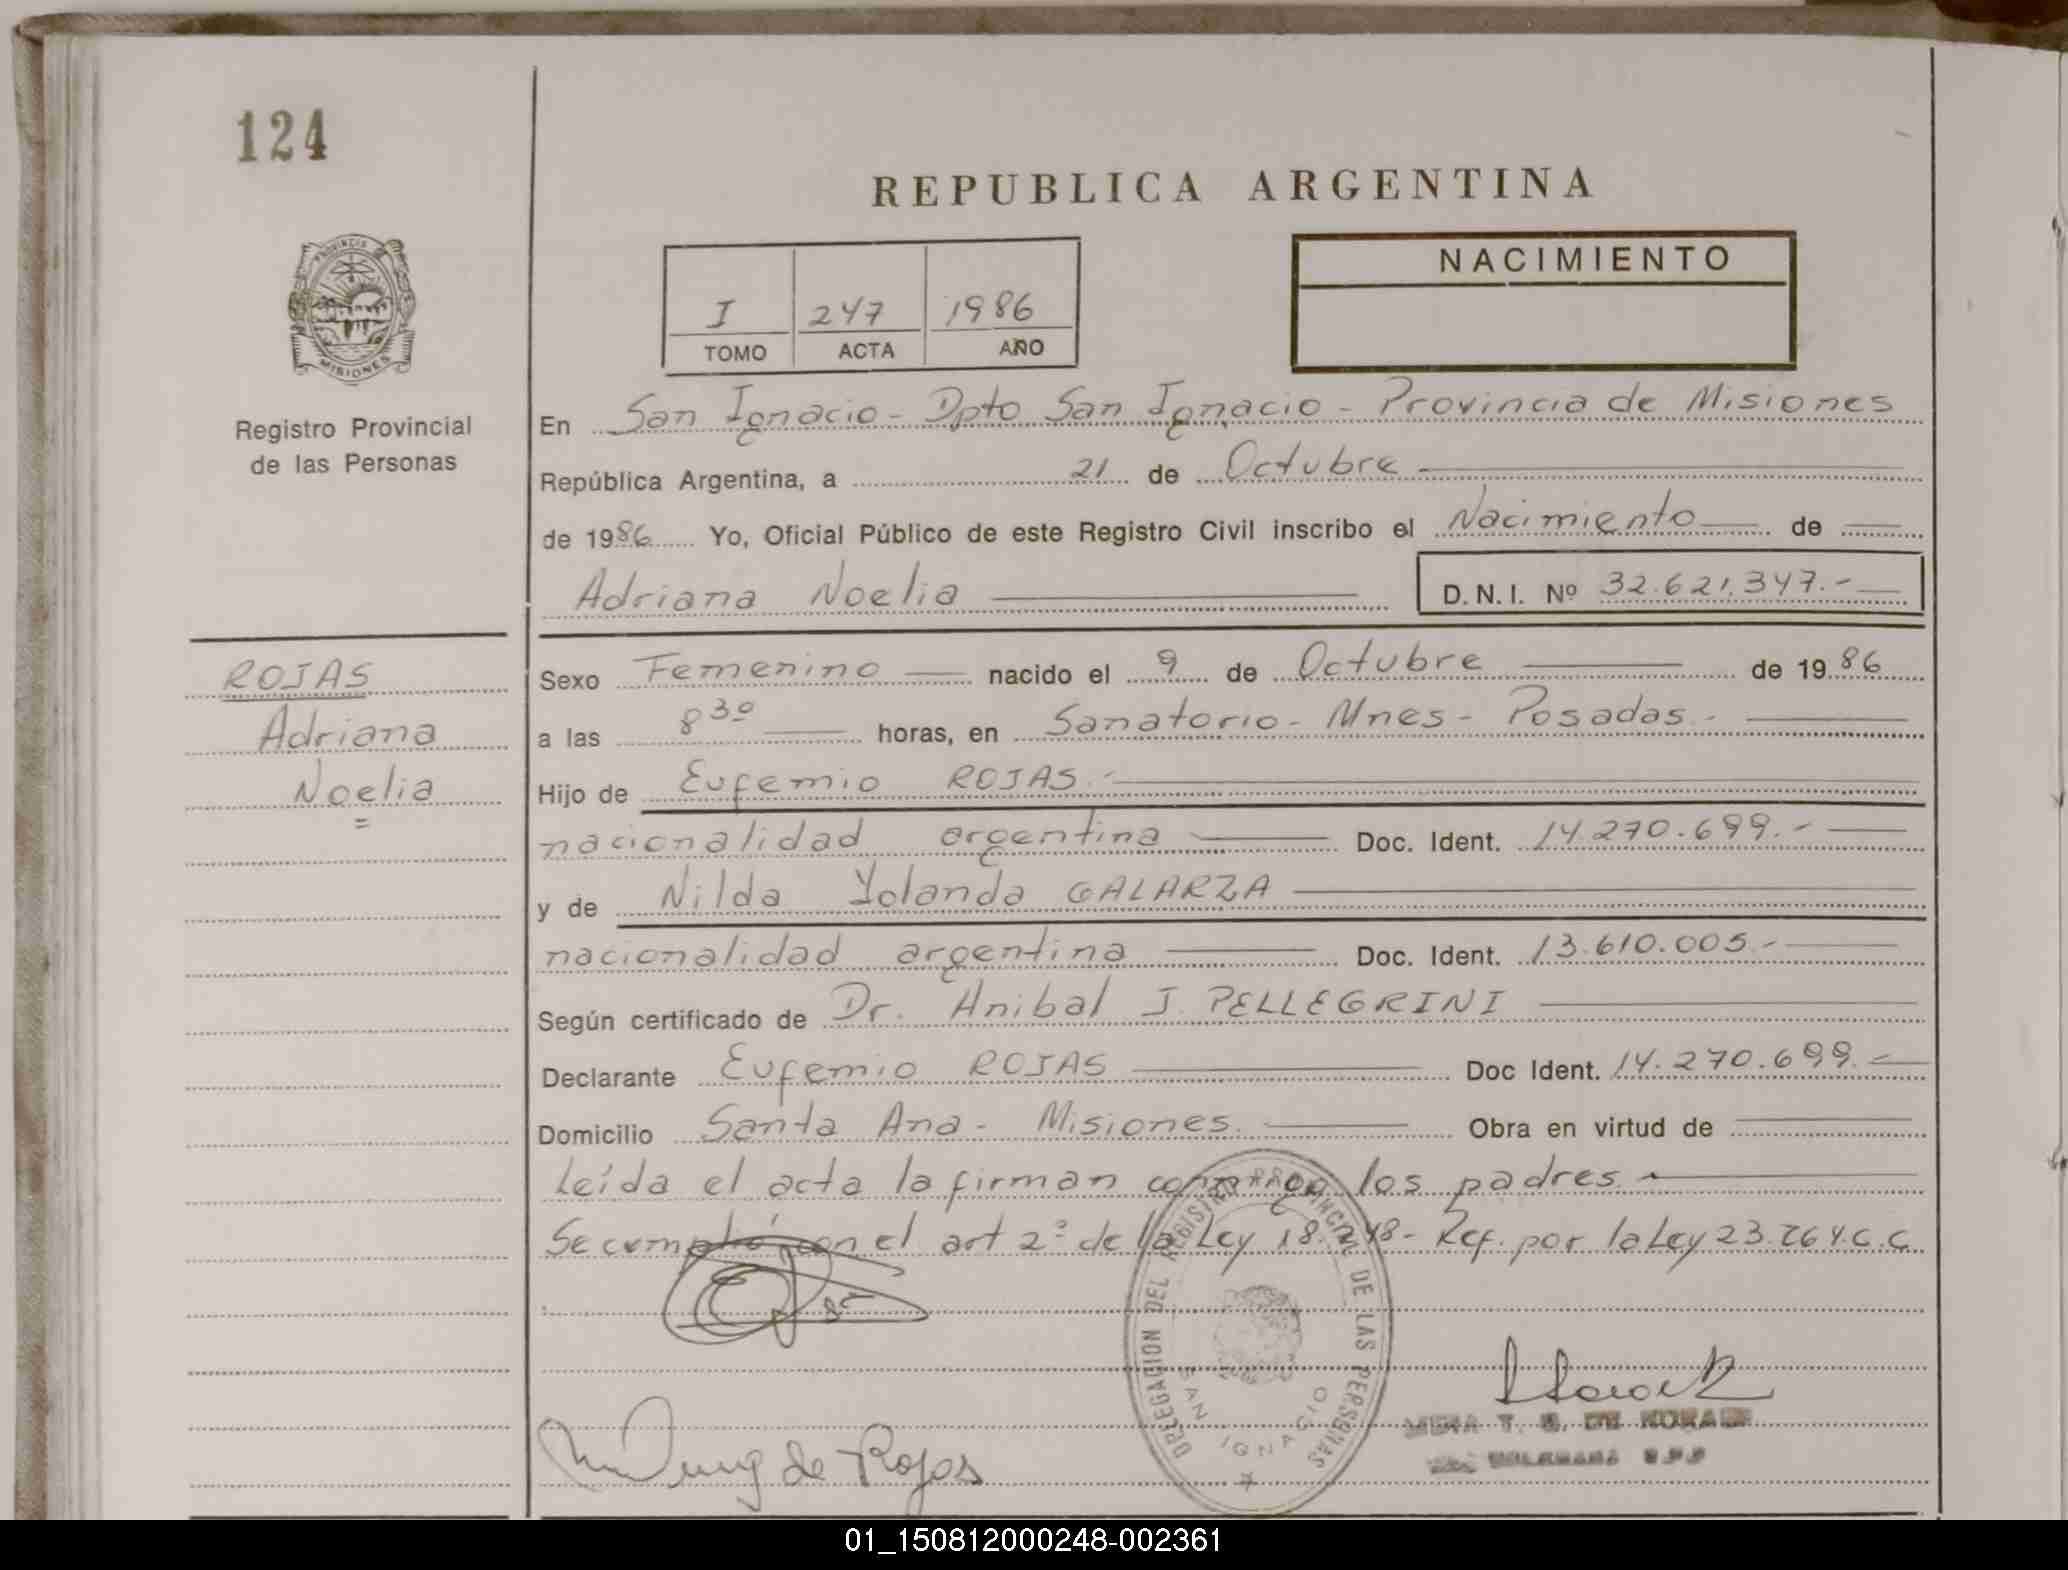 124
REPUBLICA ARGENTINA
PROVINCIA
MISIONES
NACIMIENTO
I 247 1986
TOMO ACTA AÑO
Registro Provincial
de las Personas
En San Ignacio - Dpto San Ignacio - Provincia de Misiones
República Argentina, a 21 de Octubre
de 1986 Yo, Oficial Público de este Registro Civil inscribo el Nacimiento de
Adriana Noelia D.N.I. Nº 32.621.347.-
ROJAS
Adriana
Noelia
Sexo Femenino nacido el 9 de Octubre de 1986
a las 8 30 horas, en Sanatorio - Mnes - Posadas.-
Hijo de Eufemio ROJAS.-
nacionalidad argentina Doc. Ident. 14.270.699.-
y de Nilda Yolanda GALARZA
nacionalidad argentina Doc. Ident. 13.610.005.-
Según certificado de Dr. Anibal J. PELLEGRINI
Declarante Eufemio ROJAS Doc Ident. 14.270.699.-
Domicilio Santa Ana - Misiones. Obra en virtud de
Leída el acta la firman conmigo los padres
Se cumplió con el art 2º de la Ley 18. 48- Ref. por la Ley 23.264.C.C.
DELEGACION DEL REGISTRO PROVINCIAL DE LAS PERSONAS
SAN IGNACIO
de Rojas
T. DE
01_150812000248-002361